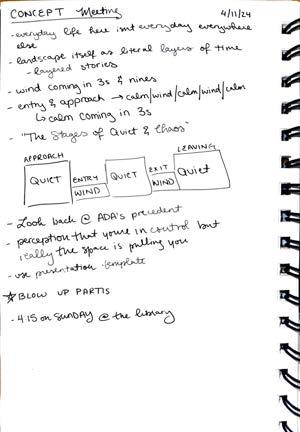 CONCEPT Meeting 4/11/24
- everyday life here isnt everyday everywhere
else
- landscape itself as literal layers of time
- layered stories
- wind coming in 3s & nines
- entry & approach → calm/wind/calm/wind/calm
↳ calm coming in 3s
- "The Stages of Quiet & Chaos"
APPROACH ENTRY EXIT LEAVING
QUIET WIND QUIET WIND Quiet
- Look back @ ADA's precedent
- perception that youre in control but
really the space is pulling you
- use presentation template
☆ BLOW UP PARTIS
- 4:15 on SUNDAY @ the library